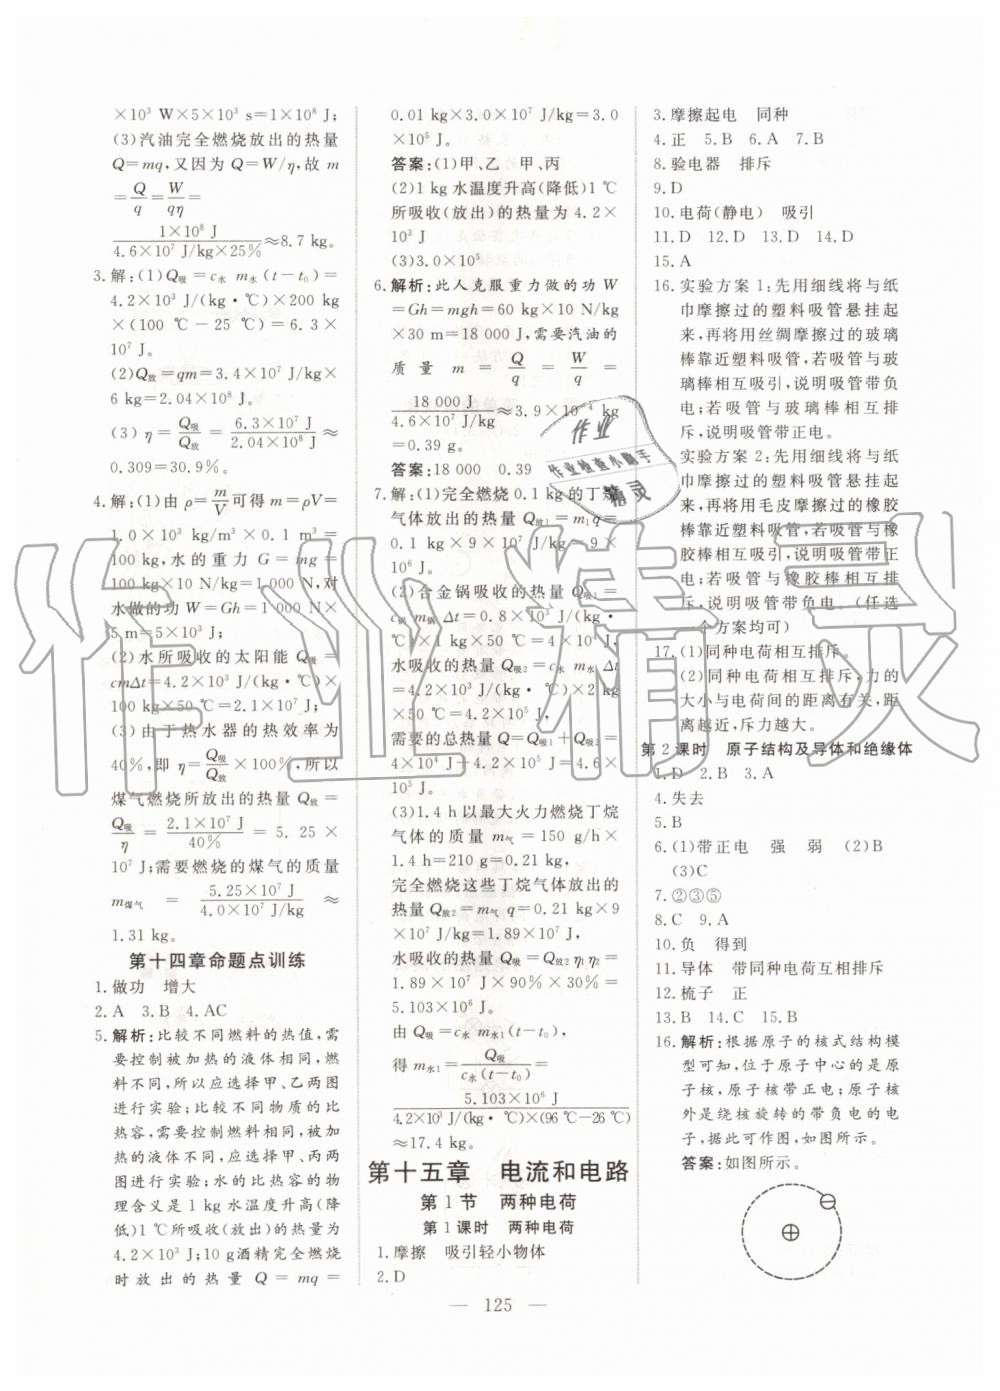 ×10³ W×5×10³ s=1×10⁸ J;
(3)汽油完全燃烧放出的热量
Q=mq,又因为 Q=W/η,故 m
= Q/q = W/(qη) =
1×10⁸ J/(4.6×10⁷ J/kg×25%) ≈8.7 kg。
3.解:(1)Q吸=c水 m水(t−t₀)=
4.2×10³ J/(kg·℃)×200 kg
×(100 ℃−25 ℃)=6.3×
10⁷ J。
(2)Q放=qm=3.4×10⁷ J/kg×
6 kg=2.04×10⁸ J。
(3) η= Q吸/Q放 = 6.3×10⁷ J/2.04×10⁸ J ≈
0.309=30.9%。
4.解:(1)由 ρ=m/V可得 m=ρV=
1.0×10³ kg/m³×0.1 m³=
100 kg,水的重力 G=mg=
100 kg×10 N/kg=1 000 N,对
水做的功 W=Gh=1 000 N×
5 m=5×10³ J;
(2)水所吸收的太阳能 Q吸=
cmΔt=4.2×10³ J/(kg·℃)×
100 kg×50 ℃=2.1×10⁷ J;
(3)由于热水器的热效率为
40%,即 η=Q吸/Q放×100%,所以
煤气燃烧所放出的热量 Q放=
Q吸/η = 2.1×10⁷ J/40% = 5.25×
10⁷ J;需要燃烧的煤气的质量
m煤气 = 5.25×10⁷ J/(4.0×10⁷ J/kg) ≈
1.31 kg。
第十四章命题点训练
1.做功 增大
2.A 3.B 4.AC
5.解析:比较不同燃料的热值,需
要控制被加热的液体相同,燃
料不同,所以应选择甲、乙两图
进行实验;比较不同物质的比
热容,需要控制燃料相同,被加
热的液体不同,应选择甲、丙两
图进行实验;水的比热容的物
理含义是 1 kg 水温度升高(降
低)1 ℃所吸收(放出)的热量为
4.2×10³ J;10 g酒精完全燃烧
时放出的热量 Q=mq=
0.01 kg×3.0×10⁷ J/kg=3.0
×10⁵ J。
答案:(1)甲、乙 甲、丙
(2)1 kg水温度升高(降低)1 ℃
所吸收(放出)的热量为 4.2×
10³ J
(3)3.0×10⁵
6.解析:此人克服重力做的功 W
=Gh=mgh=60 kg×10 N/kg
×30 m=18 000 J,需要汽油的
质量 m = Q/q = W/q =
18 000 J/(4.6×10⁷ J/kg) ≈3.9×10⁻⁴ kg
=0.39 g。
答案:18 000 0.39
7.解:(1)完全燃烧 0.1 kg的丁烷
气体放出的热量 Q放1=m₁q=
0.1 kg×9×10⁷ J/kg=9×
10⁶ J。
(2)合金锅吸收的热量 Q吸1=
c锅 m锅Δt=0.8×10³ J/(kg·
℃)×1 kg×50 ℃=4×10⁴ J,
水吸收的热量 Q吸2=c水 m水Δt
=4.2×10³ J/(kg·℃)×2 kg
×50 ℃=4.2×10⁵ J,
需要的总热量 Q=Q吸1+Q吸2=
4×10⁴ J+4.2×10⁵ J=4.6×
10⁵ J。
(3)1.4 h以最大火力燃烧丁烷
气体的质量 m气=150 g/h×
1.4 h=210 g=0.21 kg,
完全燃烧这些丁烷气体放出的
热量 Q放2=m气 q=0.21 kg×9
×10⁷ J/kg=1.89×10⁷ J,
水吸收的热量 Q吸=Q放2 η₁η₂=
1.89×10⁷ J×90%×30%=
5.103×10⁶ J。
由 Q吸=c水 m水1(t−t₀),
得 m水1= Q吸/(c水(t−t₀)) =
5.103×10⁶ J/(4.2×10³ J/(kg·℃)×(96 ℃−26 ℃))
≈17.4 kg。
第十五章 电流和电路
第1节 两种电荷
第1课时 两种电荷
1.摩擦 吸引轻小物体
2.D
3.摩擦起电 同种
4.正 5.B 6.A 7.B
8.验电器 排斥
9.D
10.电荷(静电) 吸引
11.D 12.D 13.D 14.D
15.A
16.实验方案 1:先用细线将与纸
巾摩擦过的塑料吸管悬挂起
来,再将用丝绸摩擦过的玻璃
棒靠近塑料吸管,若吸管与玻
璃棒相互吸引,说明吸管带负
电;若吸管与玻璃棒相互排
斥,说明吸管带正电。
实验方案 2:先用细线将与纸
巾摩擦过的塑料吸管悬挂起
来,再将用毛皮摩擦过的橡胶
棒靠近塑料吸管,若吸管与橡
胶棒相互吸引,说明吸管带正
电;若吸管与橡胶棒相互排
斥,说明吸管带负电。(任选
一个方案均可)
17.(1)同种电荷相互排斥。
(2)同种电荷相互排斥,力的
大小与电荷间的距离有关,距
离越近,斥力越大。
第2课时 原子结构及导体和绝缘体
1.D 2.B 3.A
4.失去
5.B
6.(1)带正电 强 弱 (2)B
(3)C
7.②③⑤
8.C 9.A
10.负 得到
11.导体 带同种电荷互相排斥
12.梳子 正
13.B 14.C 15.B
16.解析:根据原子的核式结构模
型可知,位于原子中心的是原
子核,原子核带正电;原子核
外是绕核旋转的带负电的电
子,据此可作图,如图所示。
答案:如图所示。
⊖
⊕
— 125 —
作业
作业检查小助手
精灵
作业精灵